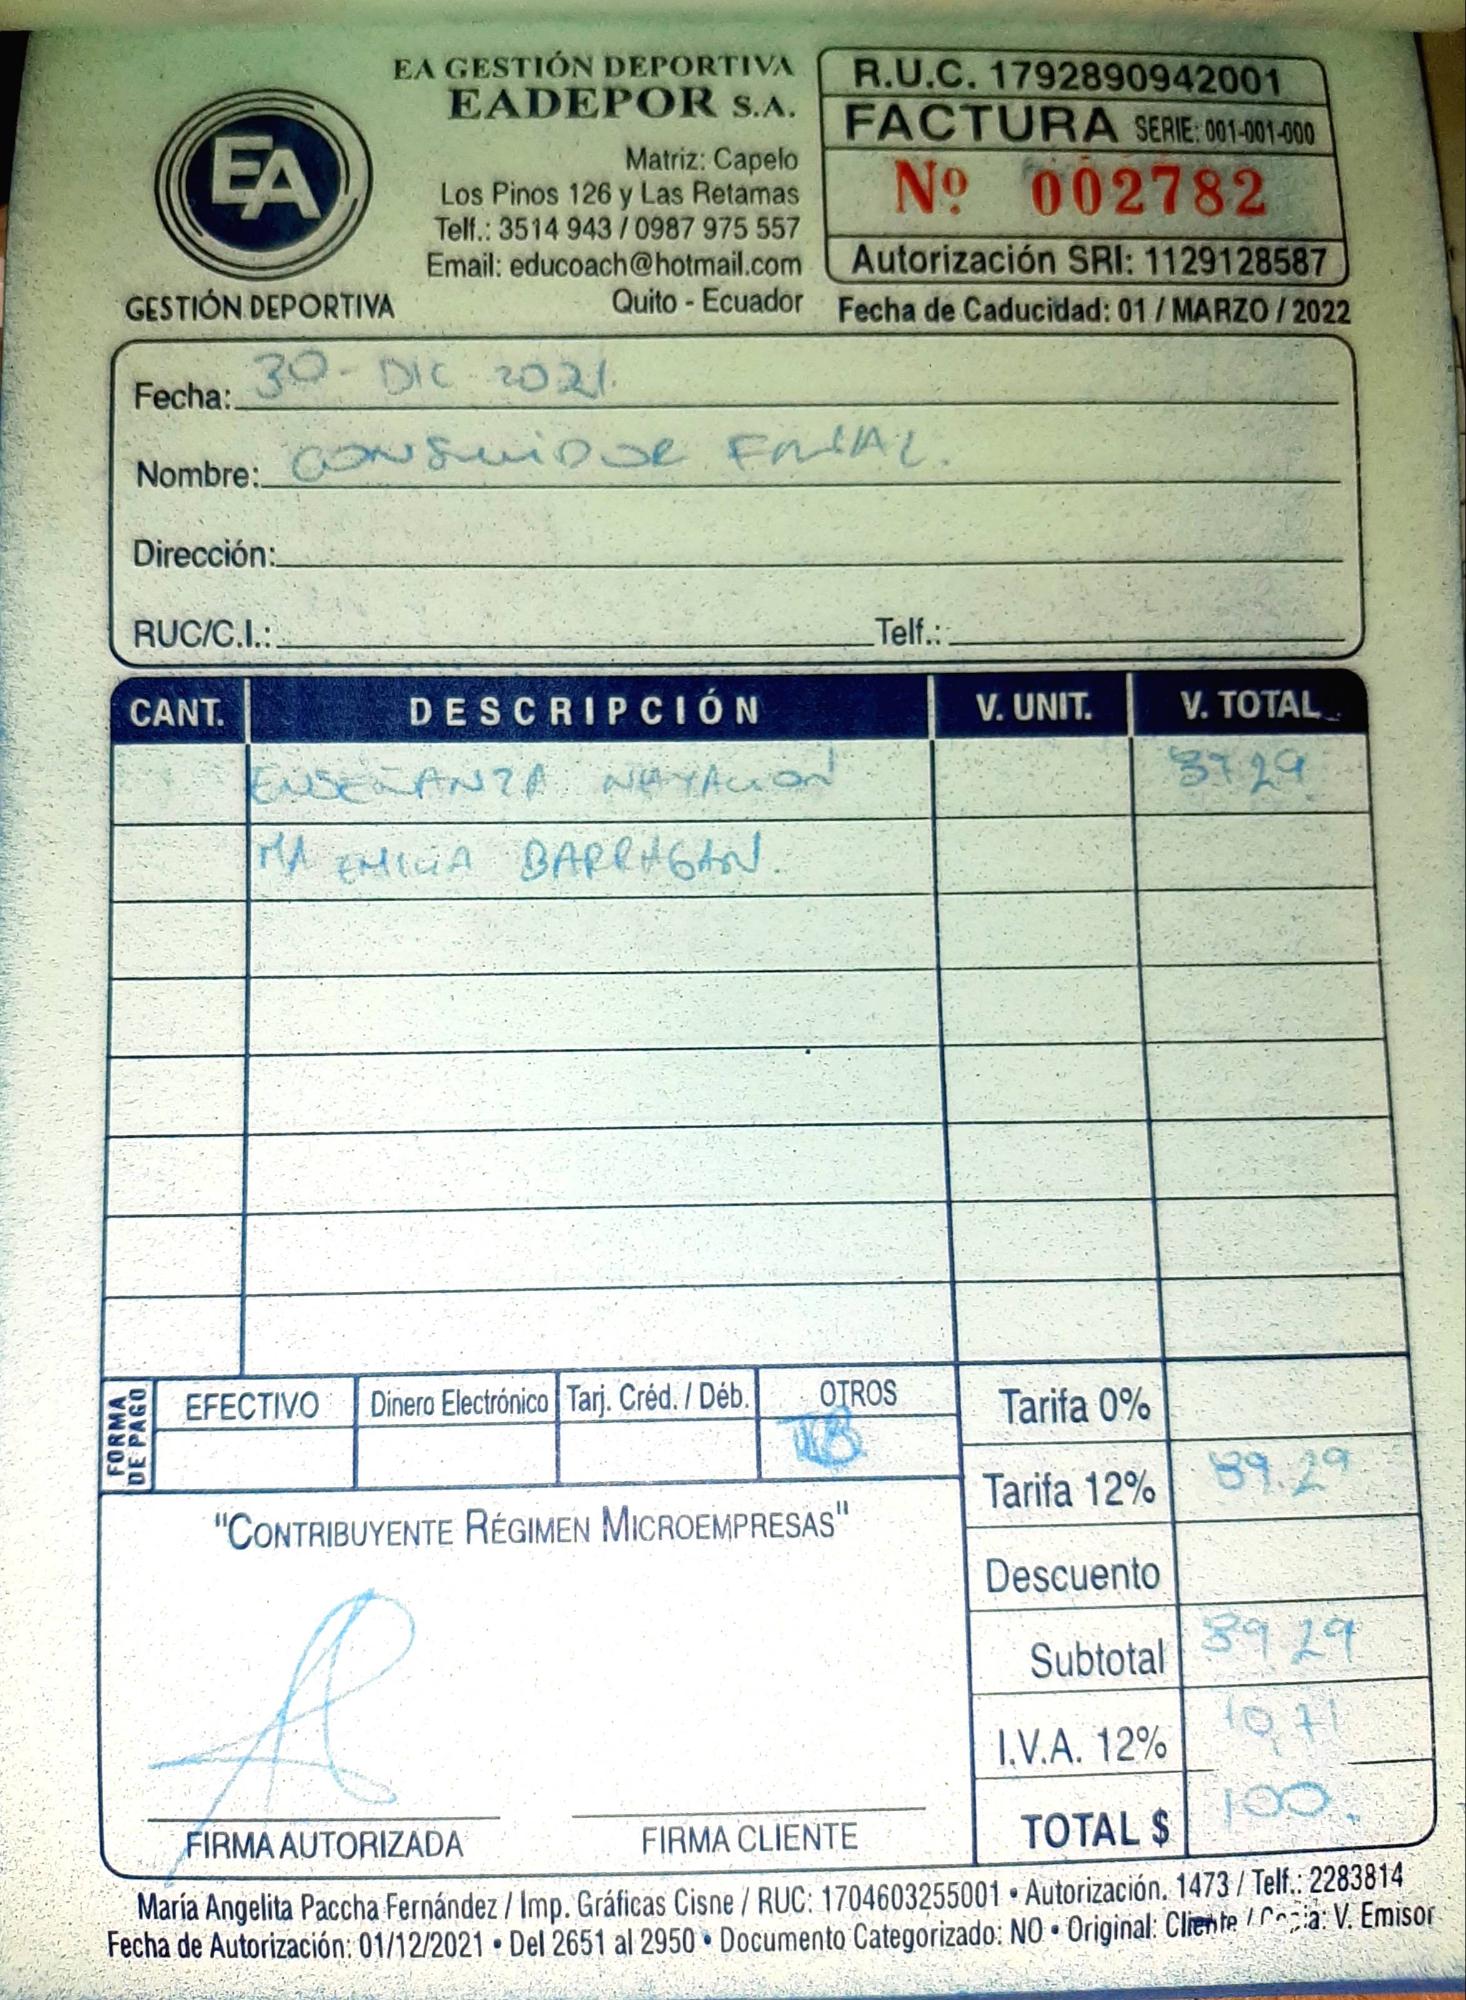 EA GESTIÓN DEPORTIVA
EADEPOR S.A.
Matriz: Capelo
Los Pinos 126 y Las Retamas
Telf.: 3514 943 / 0987 975 557
Email: educoach@hotmail.com
Quito - Ecuador
EA
GESTIÓN DEPORTIVA
R.U.C. 1792890942001
FACTURA SERIE: 001-001-000
Nº 002782
Autorización SRI: 1129128587
Fecha de Caducidad: 01 / MARZO / 2022
Fecha: 30 - DIC 2021.
Nombre: CONSUMIDOR FINAL.
Dirección:
RUC/C.I.: Telf.:
CANT. DESCRIPCIÓN V. UNIT. V. TOTAL
ENSEÑANZA NATACION 89.29
MA EMILIA BARRAGAN.
FORMA DE PAGO
EFECTIVO Dinero Electrónico Tarj. Créd. / Déb. OTROS
Tarifa 0%
Tarifa 12% 89.29
Descuento
Subtotal 89.29
I.V.A. 12% 10,71
TOTAL $ 100.
"CONTRIBUYENTE RÉGIMEN MICROEMPRESAS"
FIRMA AUTORIZADA FIRMA CLIENTE
María Angelita Paccha Fernández / Imp. Gráficas Cisne / RUC: 1704603255001 • Autorización. 1473 / Telf.: 2283814
Fecha de Autorización: 01/12/2021 • Del 2651 al 2950 • Documento Categorizado: NO • Original: Cliente / Copia: V. Emisor